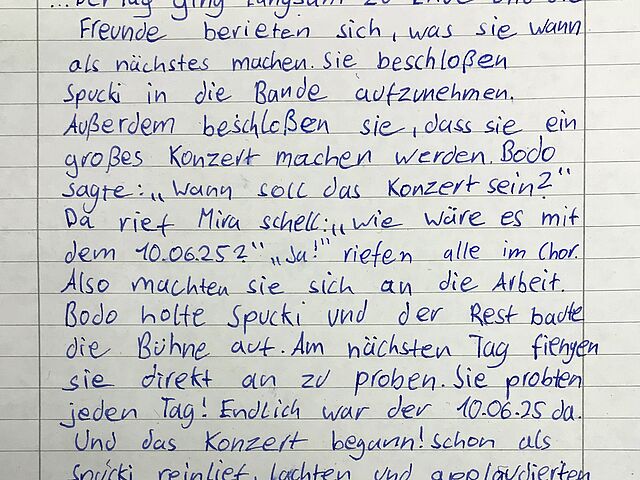 ...Der Tag ging langsam zu Ende und die
Freunde berieten sich, was sie wann
als nächstes machen. Sie beschloßen
Spucki in die Bande aufzunehmen.
Außerdem beschloßen sie, dass sie ein
großes Konzert machen werden. Bodo
sagte: „Wann soll das Konzert sein?"
Da rief Mira schell: „Wie wäre es mit
dem 10.06.25?" „Ja!" riefen alle im Chor.
Also machten sie sich an die Arbeit.
Bodo holte Spucki und der Rest baute
die Bühne auf. Am nächsten Tag fiengen
sie direkt an zu proben. Sie probten
jeden Tag! Endlich war der 10.06.25 da.
Und das Konzert begann! Schon als
Spucki reinlief, lachten und applaudierten